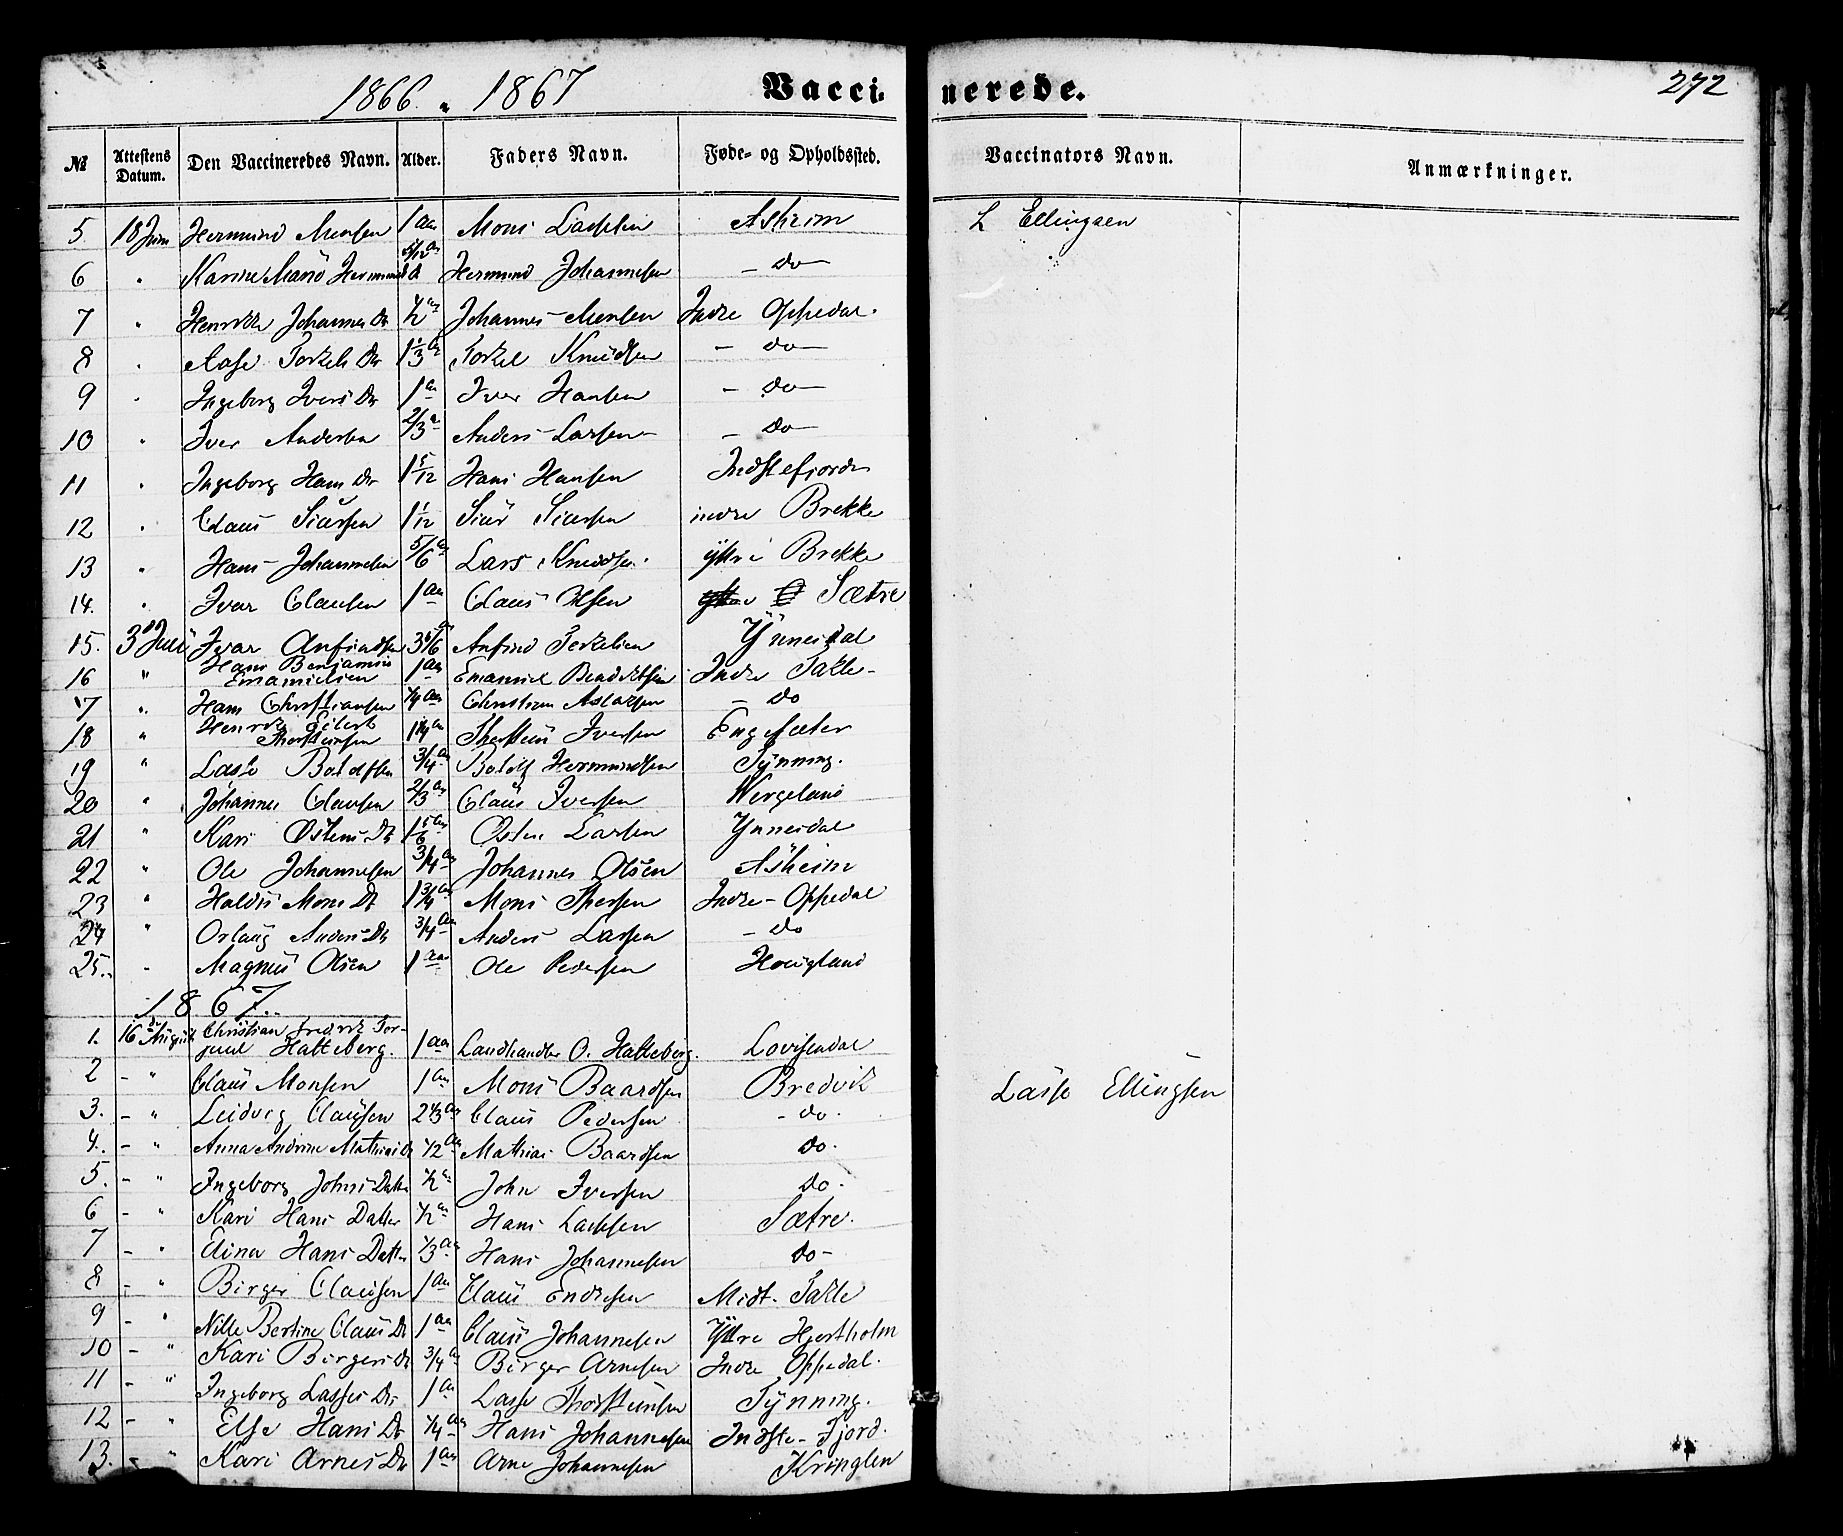 1866 " 1867 Vaccinerede. 272
№ Attestens Datum. Den Vaccineredes Navn. Alder. Faders Navn. Føde- og Opholdssted. Vaccinators Navn. Anmærkninger.
5. 18 Juni Hermund Monsen 1 aar Mons Lassesen Asheim L Ellingsen
6 " Karine Hermund Johannesen - do -
7 " Henrikke Johannes Dr ½ Johannes Monsen Indre Oppedal.
8 " Aase Torkels Dr 1⅓ Torkel Knudsen - do -
9 " Ingeborg Ivers Dr 1 Iver Hansen - do -
10 " Iver Andersen 2/3 Anders Larsen - do -
11 " Ingeborg Hans Dr 1 5/12 Hans Hansen Indstefjorden
12 " Claus Siursen 1 1/12 Siur Siursen indre Brekke
13 " Hans Johannesen 5/6 Lars Knudsen ytre Brekke
14. " Ivar Clausen 1 aar Claus Olsen Sætre
15. 3 Juli Ivar Anfindsen Anfind Torkelsen Ynnesdal
16 " Hans Benjamin
Emanuelsen 1 aar Emanuel Bendiktsen Indre Takle -
17 " Hans Christiansen ¼ aar Christian Aslaksen - do
18 " Henrik Eilert
Thorsteinsen Thorstein Iversen Engesæter
19 " Lasse Botolfsen ¾ Botolf Hermundsen Tynning.
20 " Johannes Clausen 2/3 Claus Iversen Wergeland
21 " Kari Østens Dr 1 5/6 Østen Larsen Ynnesdal
22 " Ole Johannesen ¾ Johannes Olsen Asheim
23 " Haldis Mons Dr 1¾ Mons Thersen Indre - Oppedal
24 " Orlaug Anders Dr ¾ Anders Larsen - do
25. " Magnus Olsen 1 aar Ole Pedersen Hougland
1867.
1. 16 August Christian Fredrik Tor-
juul Hatteberg. 1 aar Landhandler O. Hatteberg. Lovisendal
2 - " Claus Monsen 1 Mons Baardsen Bredvik Lasse Ellingsen
3. - " Ludvig Clausen 2⅓ Claus Pedersen - do.
4. - " Anna Andrine Mathias Dr ½ Mathias Baardsen do.
5. - " Ingeborg Johns Datter ½ John Iversen do.
6 - " Kari Hans Datter ½ Hans Lassesen Sætre.
7 - " Elina Hans Datter ⅓ Hans Johannesen do -
8 - " Birger Clausen 1 aar Claus Endresen Midt. Takle
9 - " Nille Bertine Claus Dr 1 aar Claus Johannesen Yttre Hjortholm
10 - " Kari Birgers Dr ¾ Birger Arnesen Indre Oppedal.
11 - " Ingeborg Lasses Dr 1 Lasse Thorsteinsen Tynning.
12 - " Else Hans Dr ¼ Hans Johannesen Indste - Fjord.
13. - " Kari Arnes Dr 1 aar Arne Johannesen Kringlen